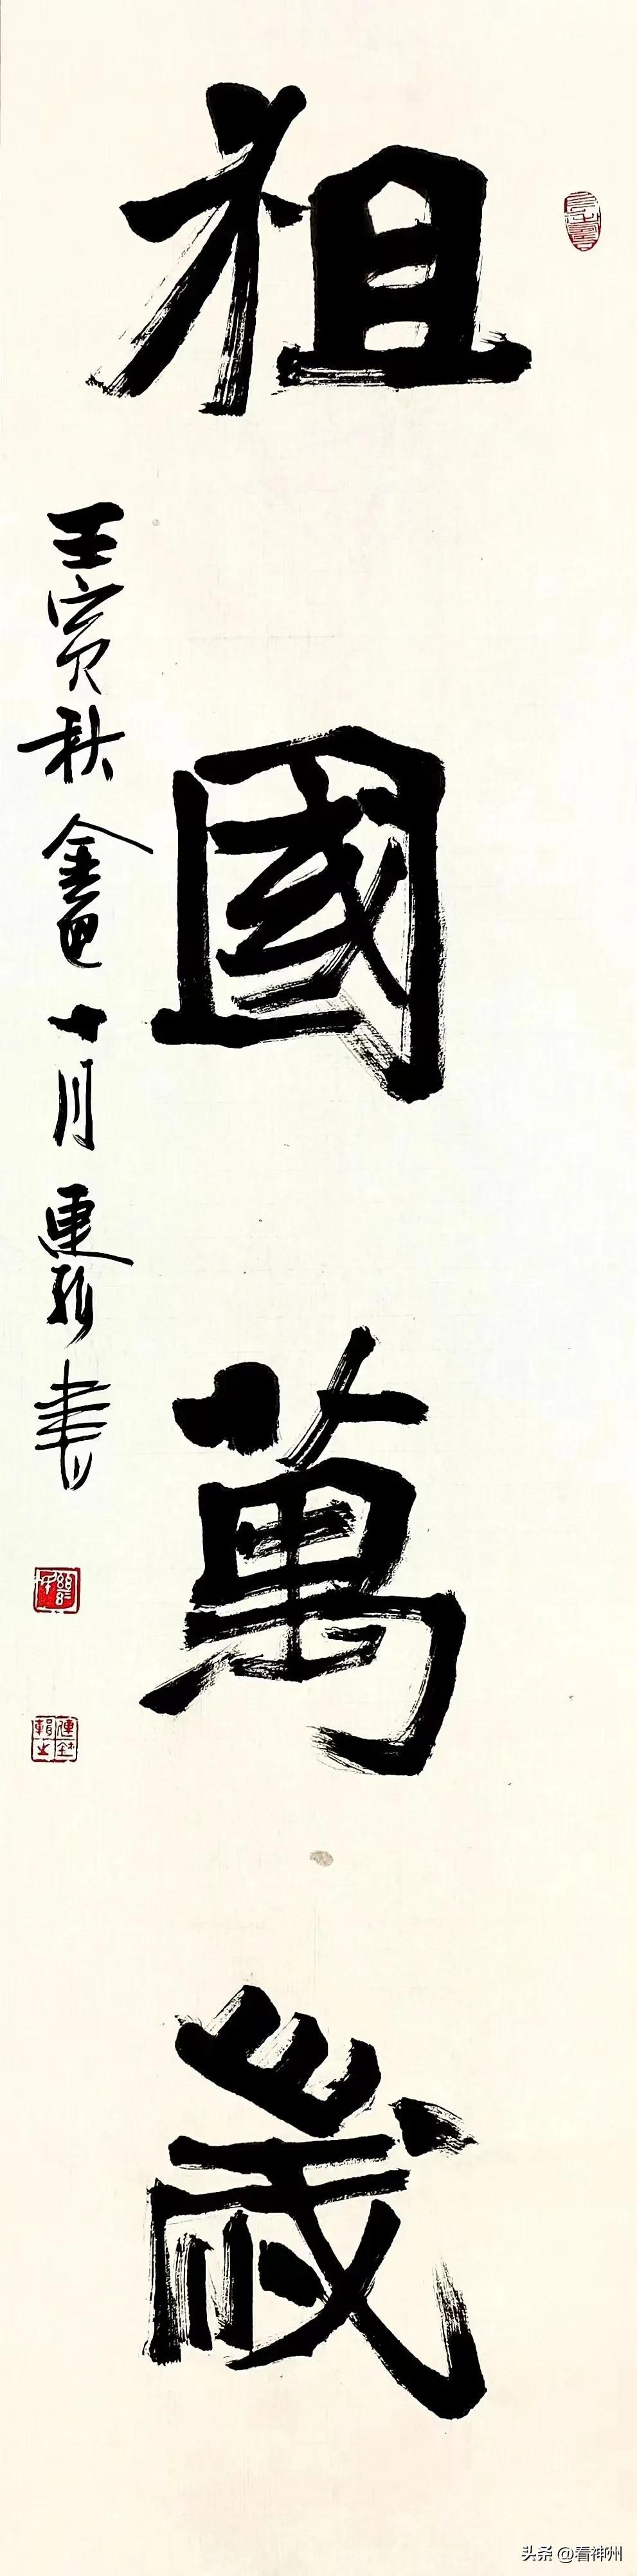 祖國萬歲
壬寅秋金色十月連書
头条 @看神州